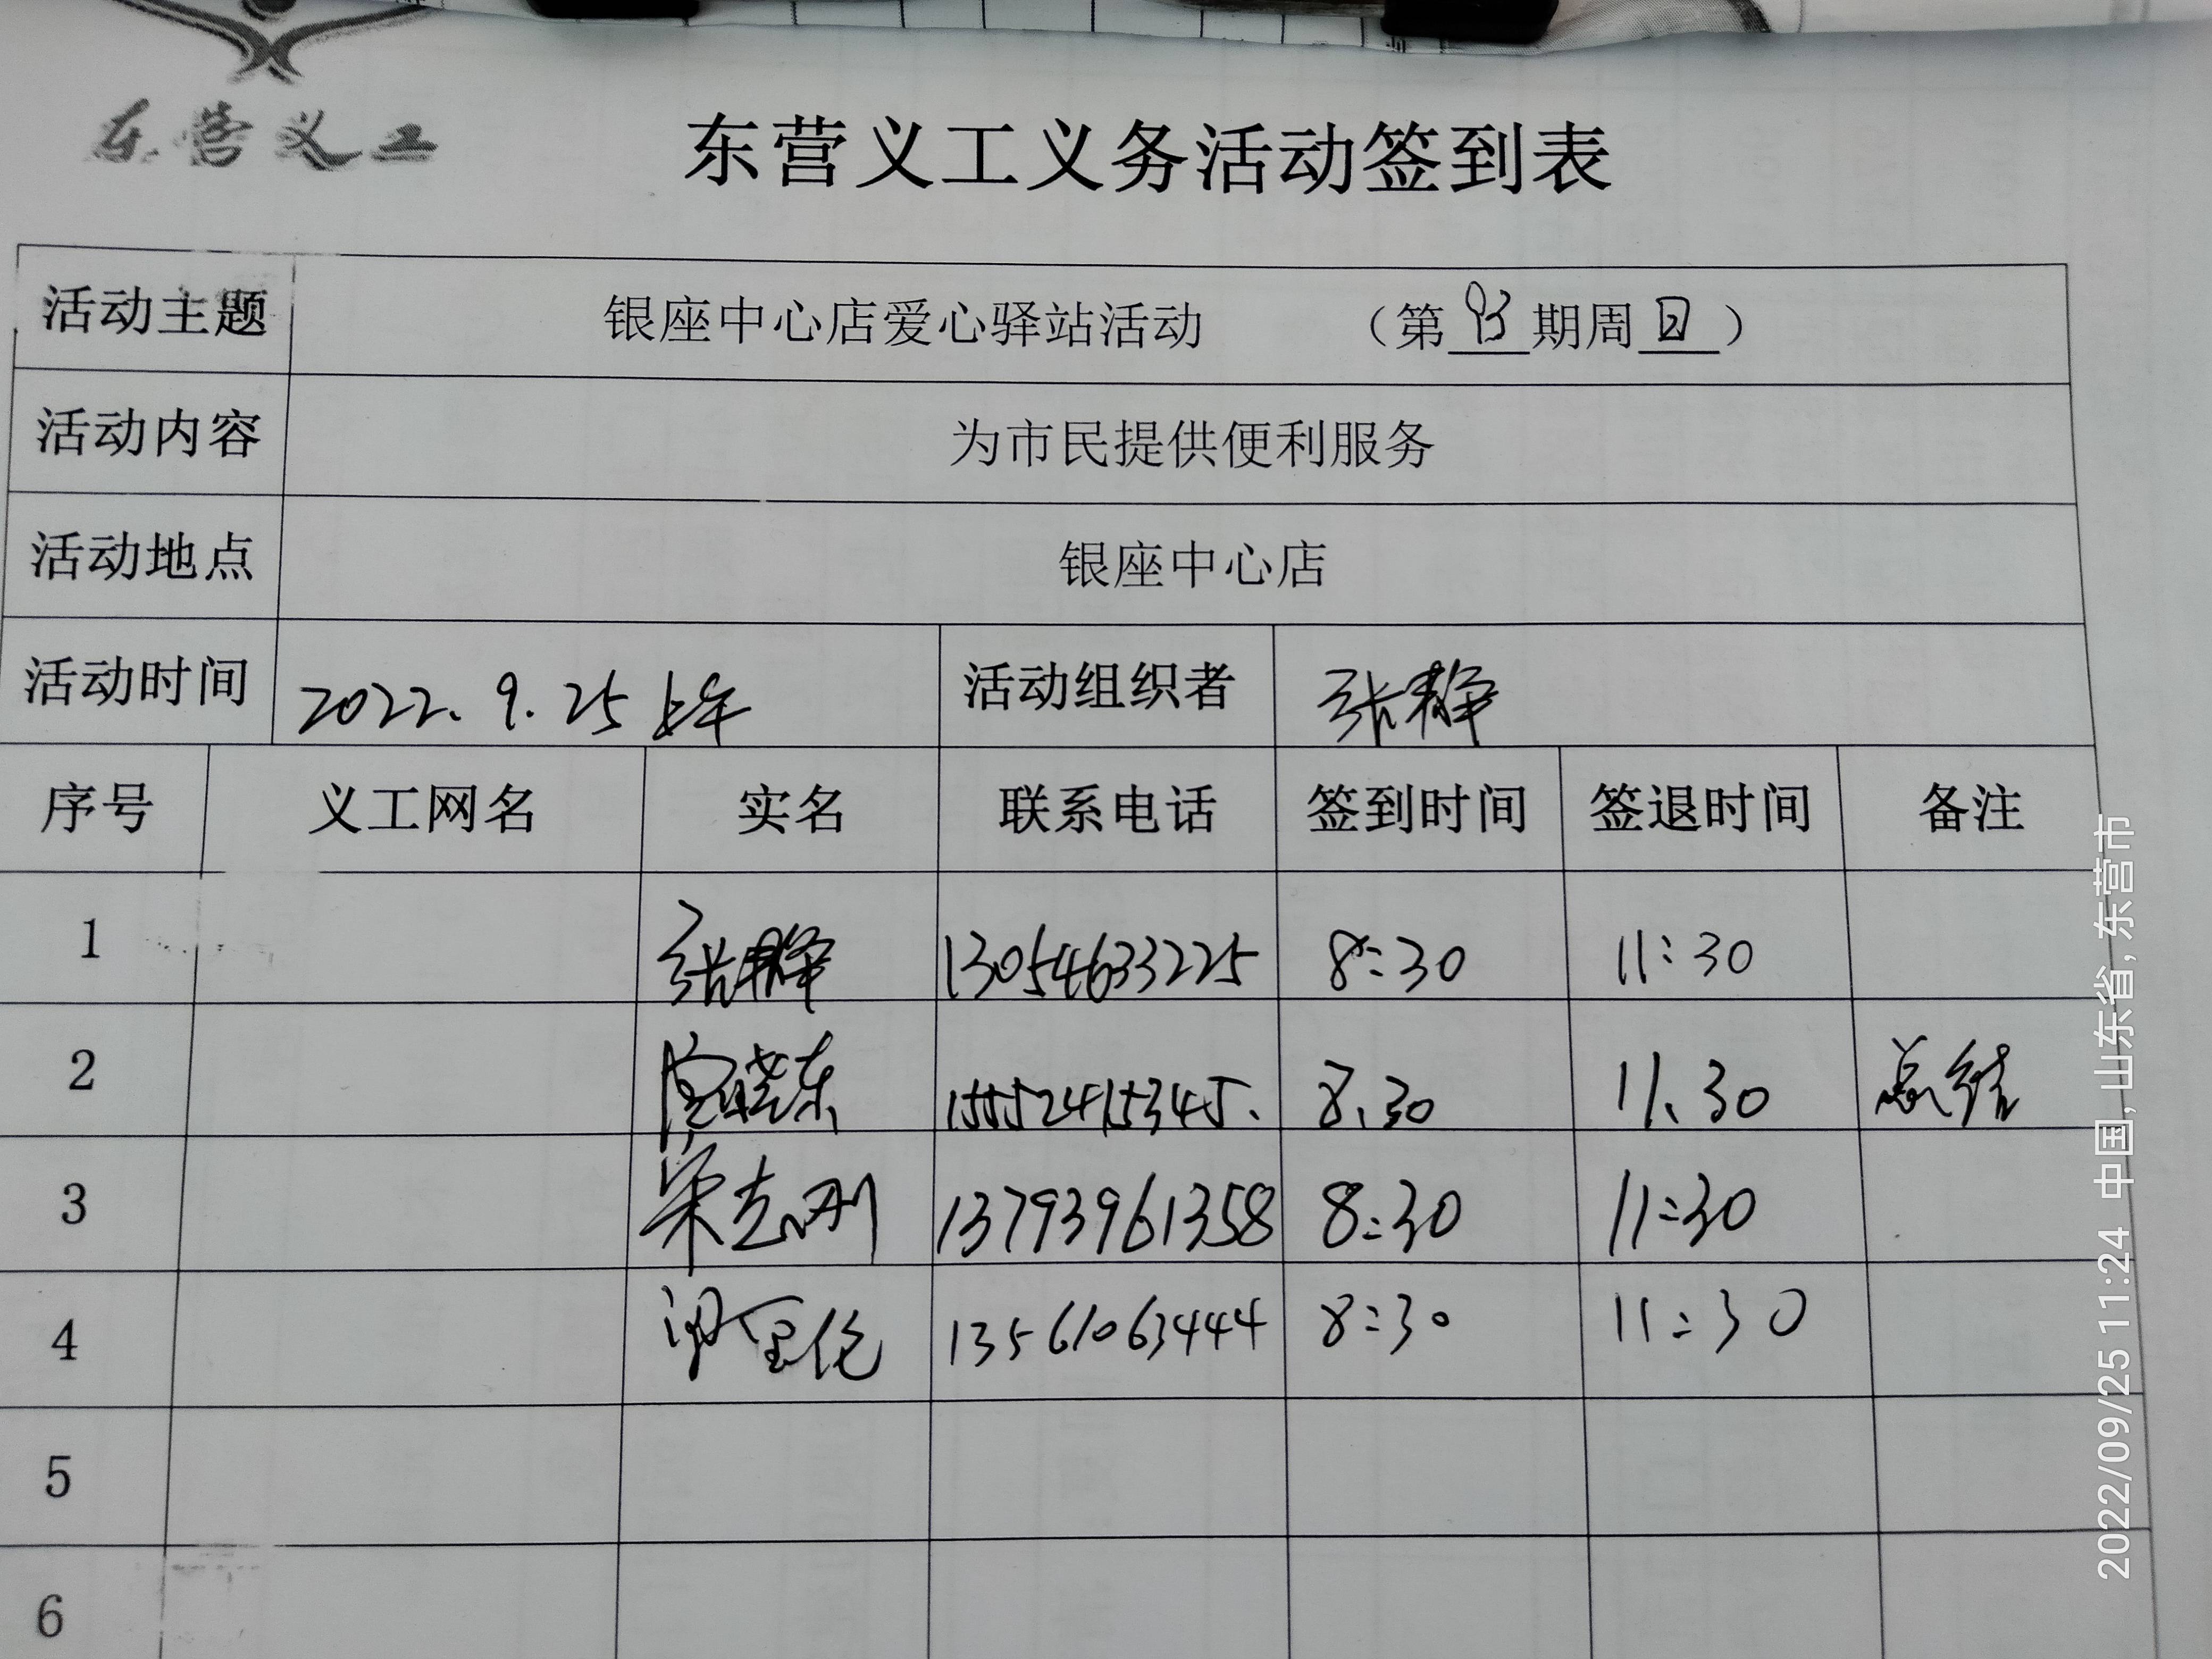 东营义工
东营义工义务活动签到表
活动主题 银座中心店爱心驿站活动 （第93期周日）
活动内容 为市民提供便利服务
活动地点 银座中心店
活动时间 2022.9.25上午 活动组织者 张静
序号 义工网名 实名 联系电话 签到时间 签退时间 备注
1 张静 13054633225 8:30 11:30
2 晓东 15552415345. 8.30 11.30 总结
3 宋志刚 13793961358 8:30 11:30
4 13561063444 8:30 11:30
5
6
2022/09/25 11:24 中国,山东省,东营市